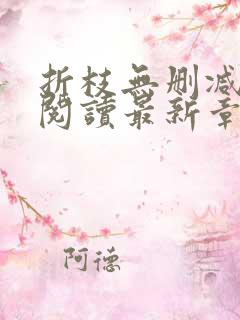 折枝無刪减
閱讀最新章
阿德